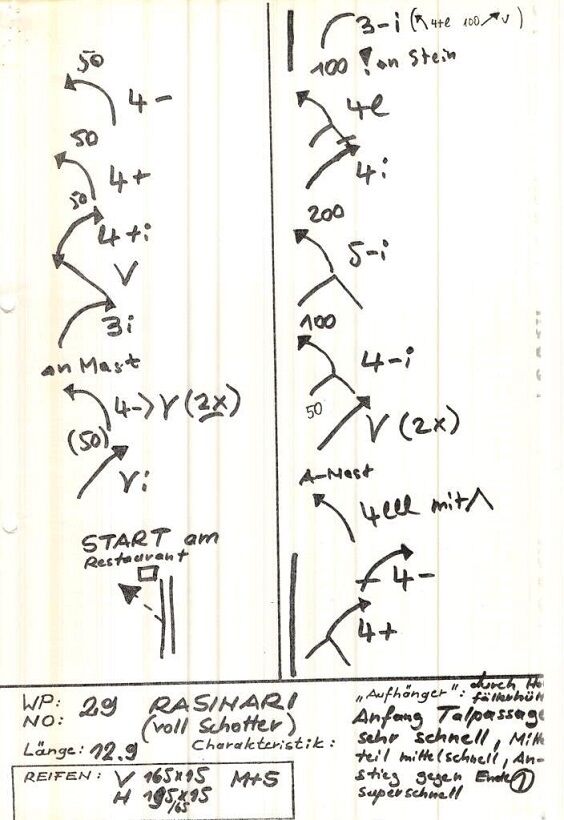 50
4-
50
4+
50
4+i
V
3i
an Mast
4-> V (2x)
(50)
Vi
START am
Restaurant
3-i ( 4+l 100 V )
100 ! an Stein
4l
4i
200
5-i
100
4-i
50
V (2x)
A-Mast
4lll mit Λ
4-
4+
WP: 29 RASINARI
NO: (voll Schotter)
Länge: 12.9 Charakteristik:
REIFEN: V 165x15 M+S
H 195x15
/65
„Aufhänger": durch
Anfang Talpassage
sehr schnell, Mitt
teil mittelschnell, An-
stieg gegen Ende 1
superschnell